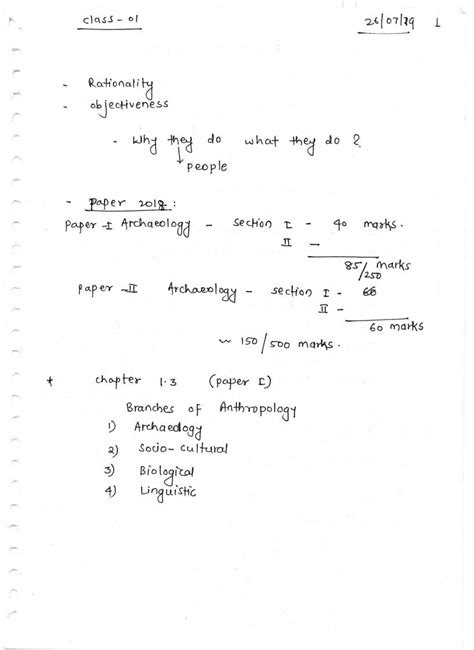 class - 01
26/07/19 1
- Rationality
- objectiveness
- Why they do what they do ?
people
- paper 2018 :
paper - I Archaeology - section I - 40 marks.
II -
85/250 marks
paper - II Archaeology - section I -
II -
60 marks
~ 150/500 marks.
* chapter 1.3 (paper I)
Branches of Anthropology
1) Archaeology
2) Socio-cultural
3) Biological
4) Linguistic